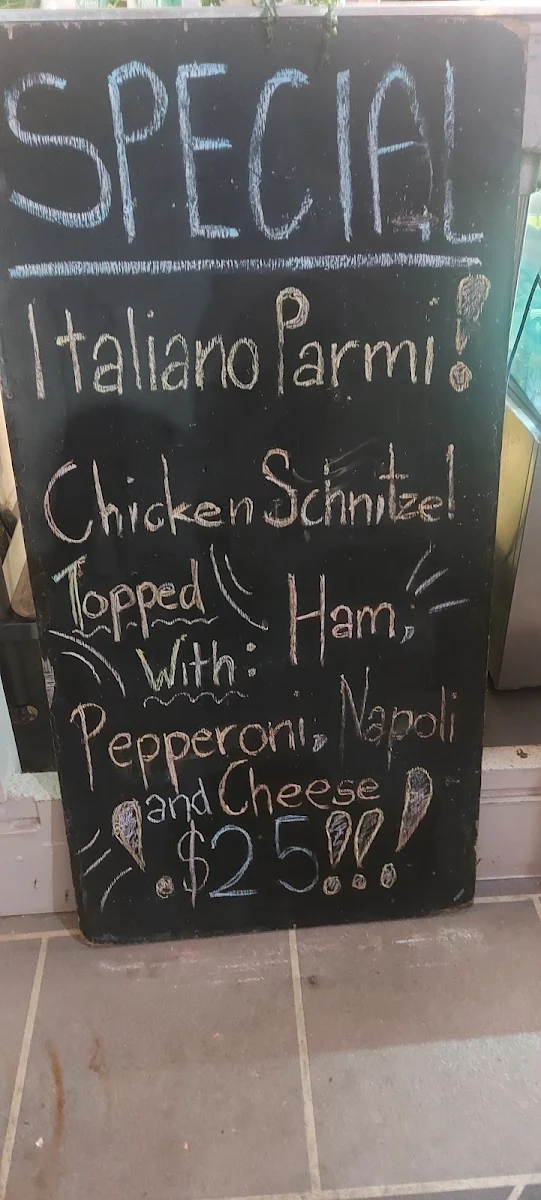 SPECIAL
Italiano Parmi!
Chicken Schnitzel
Topped
With: Ham,
Pepperoni, Napoli
and Cheese
! $25!!!